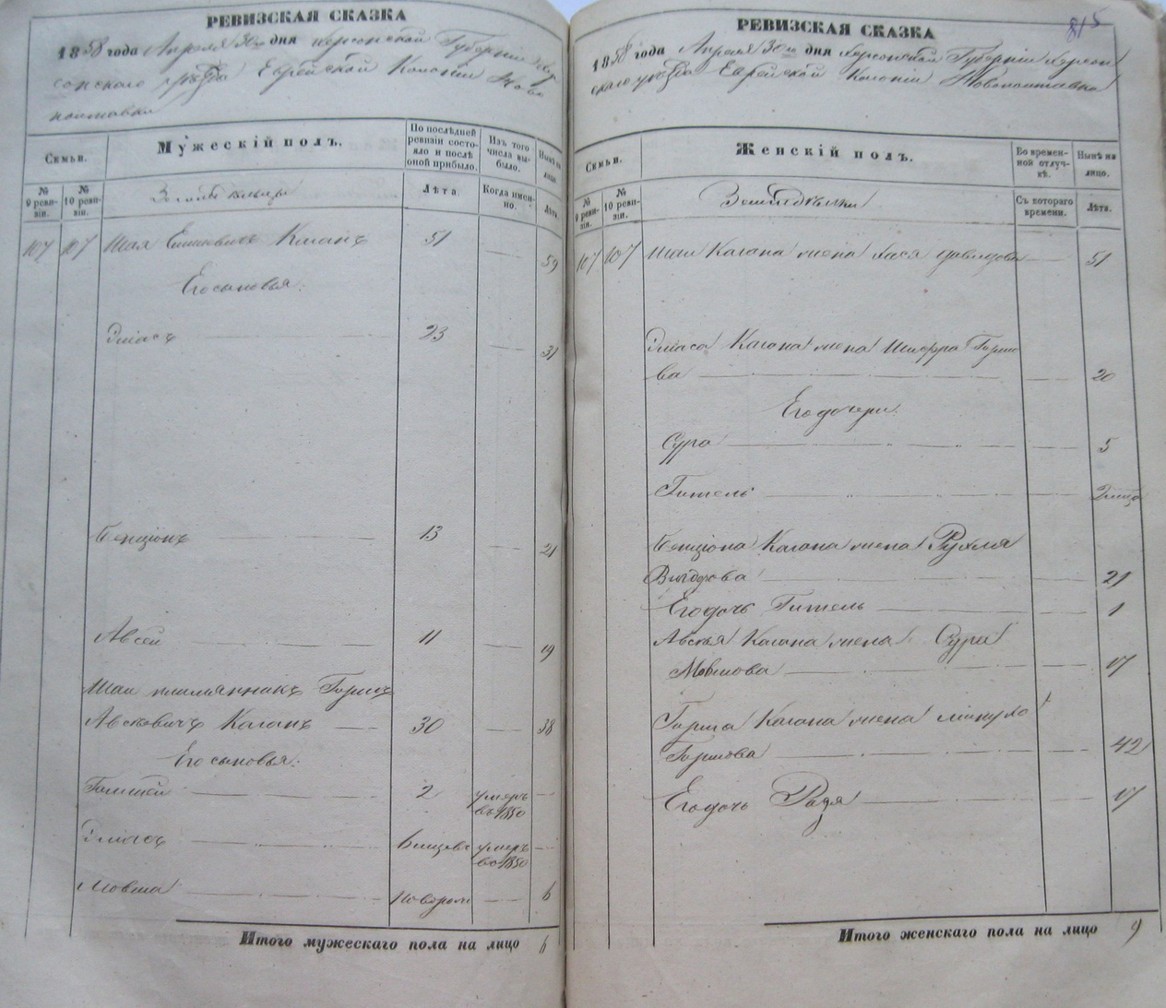 РЕВИЗСКАЯ СКАЗКА
1858 года Апреля 30го дня Херсонской Губернии Хер
сонскаго уезда Еврейской Колонии Ново
полтавки
Семьи.
Мужескій полъ.
По послѣдней ревизіи состояло и послѣ оной прибыло.
Изъ того числа выбыло.
Нынѣ на лицо.
№ 9 ревизіи.
№ 10 ревизіи.
Лѣта.
Когда именно.
Лѣта.
107 107 Шая Каганъ 51 59
Его сыновья:
Эліасъ 23 31
Бенціонъ 13 21
Авсей 11 19
Шаи племянникъ Гершъ
Авсѣевичъ Каганъ 30 38
Его сыновья:
2 умеръ въ 1850
Эліасъ умеръ въ 1850
Мовша Новорож 6
Итого мужескаго пола на лицо 6
815
РЕВИЗСКАЯ СКАЗКА
1858 года Апреля 30го дня Херсонской Губерніи Херсон
скаго уезда Еврейской Колоніи Новополтавки
Семьи.
Женскій полъ.
Во временной отлучкѣ.
Нынѣ на лицо.
№ 9 ревизіи.
№ 10 ревизіи.
Съ котораго времени.
Лѣта.
107 107 Шаи Кагана жена Хася Давидова 51
Эліаса Кагана жена Шифра Герш
ва 20
Его дочери:
Сура 5
Гитель
Бенціона Кагана жена Рухля
Вигдорова 21
Его дочь Гитель 1
Авсѣя Кагана жена
Мовшова 17
Герша Кагана жена
Гершова 42
Его дочь 17
Итого женскаго пола на лицо 9